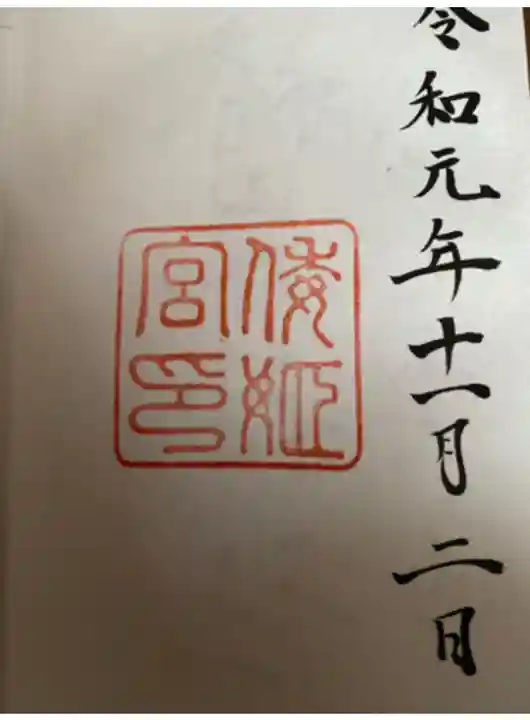 令和元年十一月二日
倭姫
宮印